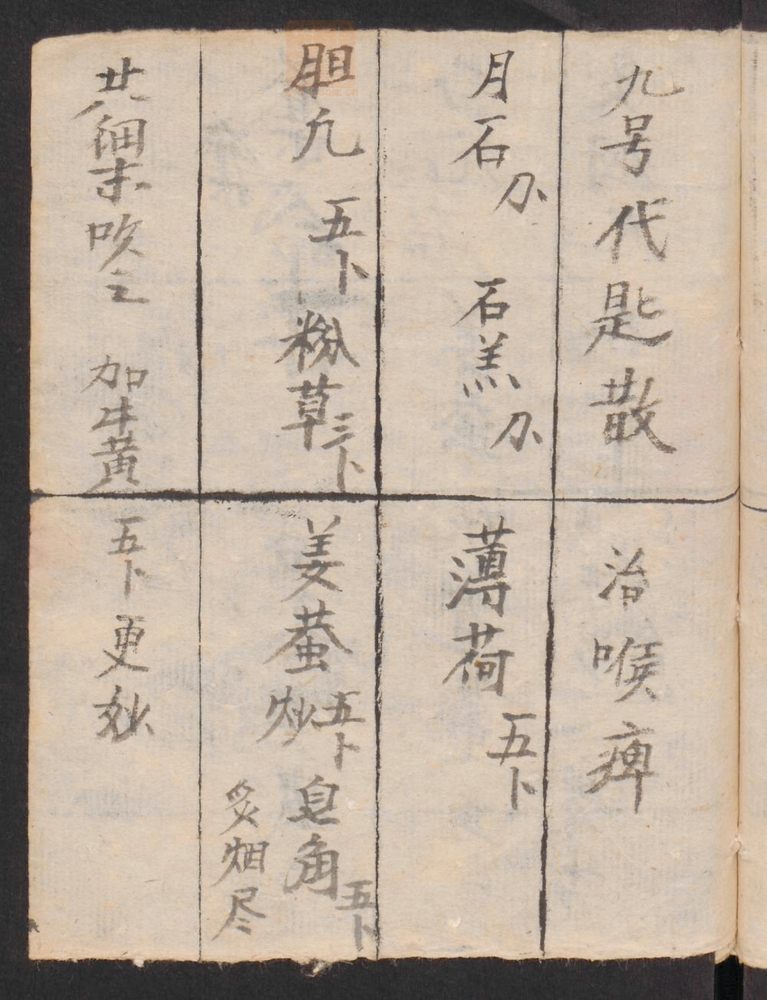 九号代匙散 治喉痺
月石刄 石羔刄 薄荷五卜
胆凢五卜 粉草三卜 姜蚕炒五卜 皂角五卜 炙烟尽
共細末吹之 加牛黄五卜更妙